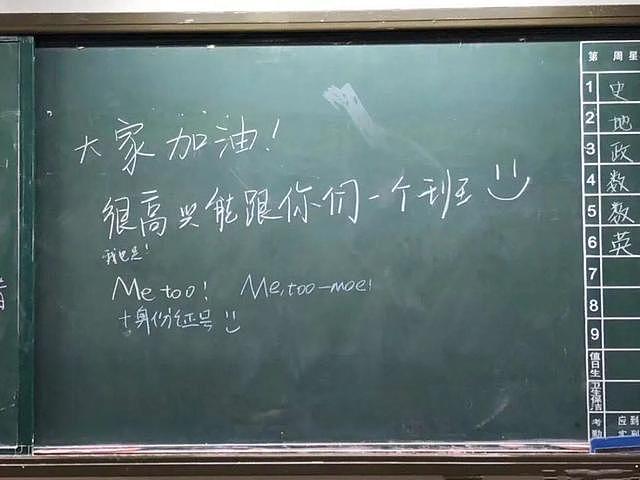 大家加油!
很高兴能跟你们一个班
我也是!
Me too! Me, too-moe!
+身份证号
第 周星
1 史
2 地
3 政
4 数
5 数
6 英
7
8
9
值日生
卫生保洁
考勤 应到
实到